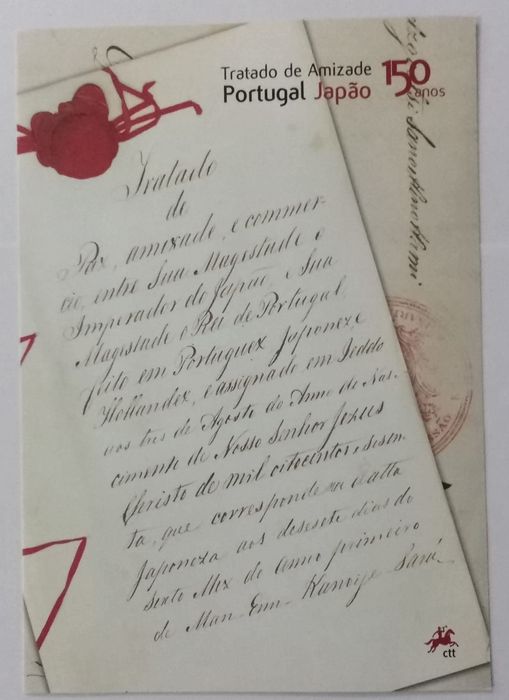 Tratado de Amizade
Portugal Japão
150 anos
Tratado
de
Paz, amizade, e commer-
cio, entre Sua Magestade o
Imperador do Japão, e Sua
Magestade o Rei de Portugal,
feito em Portuguez, Japonez, e
Hollandez, e assignado em Jeddo
aos tres de Agosto do Anno do Nas-
cimento de Nosso Senhor Jezus
Christo de mil oitocentos e sesen-
ta, que corresponde na data
Japoneza aos desesete dias do
sexto Mez do anno primeiro
de Man-Enn-Kanoije-Saru.
ctt